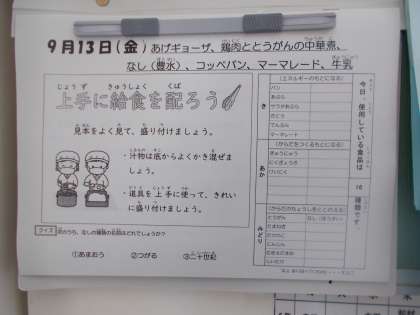 9月13日(金) あげギョーザ、鶏肉ととうがんの中華煮、
なし(豊水)、コッペパン、マーマレード、牛乳
じょうず きゅうしょく くば
上手に給食を配ろう
見本をよく見て、盛り付けましょう。
・汁物は底からよくかき混ぜま
しょう。
・道具を上手に使って、きれい
に盛り付けましょう。
クイズ
①あまおう ②つがる ③二十世紀
今日、使用している食品は
16
種類です
き
(エネルギーのもとになる)
パン
あぶら
さとう
でんぷん
マーマレード
あか
(からだをつくるもとになる)
ぎゅうにゅう
とりにく
みどり
(からだのちょうしをととのえる)
とうがん
なし(ほうすい)
たまねぎ
にんじん